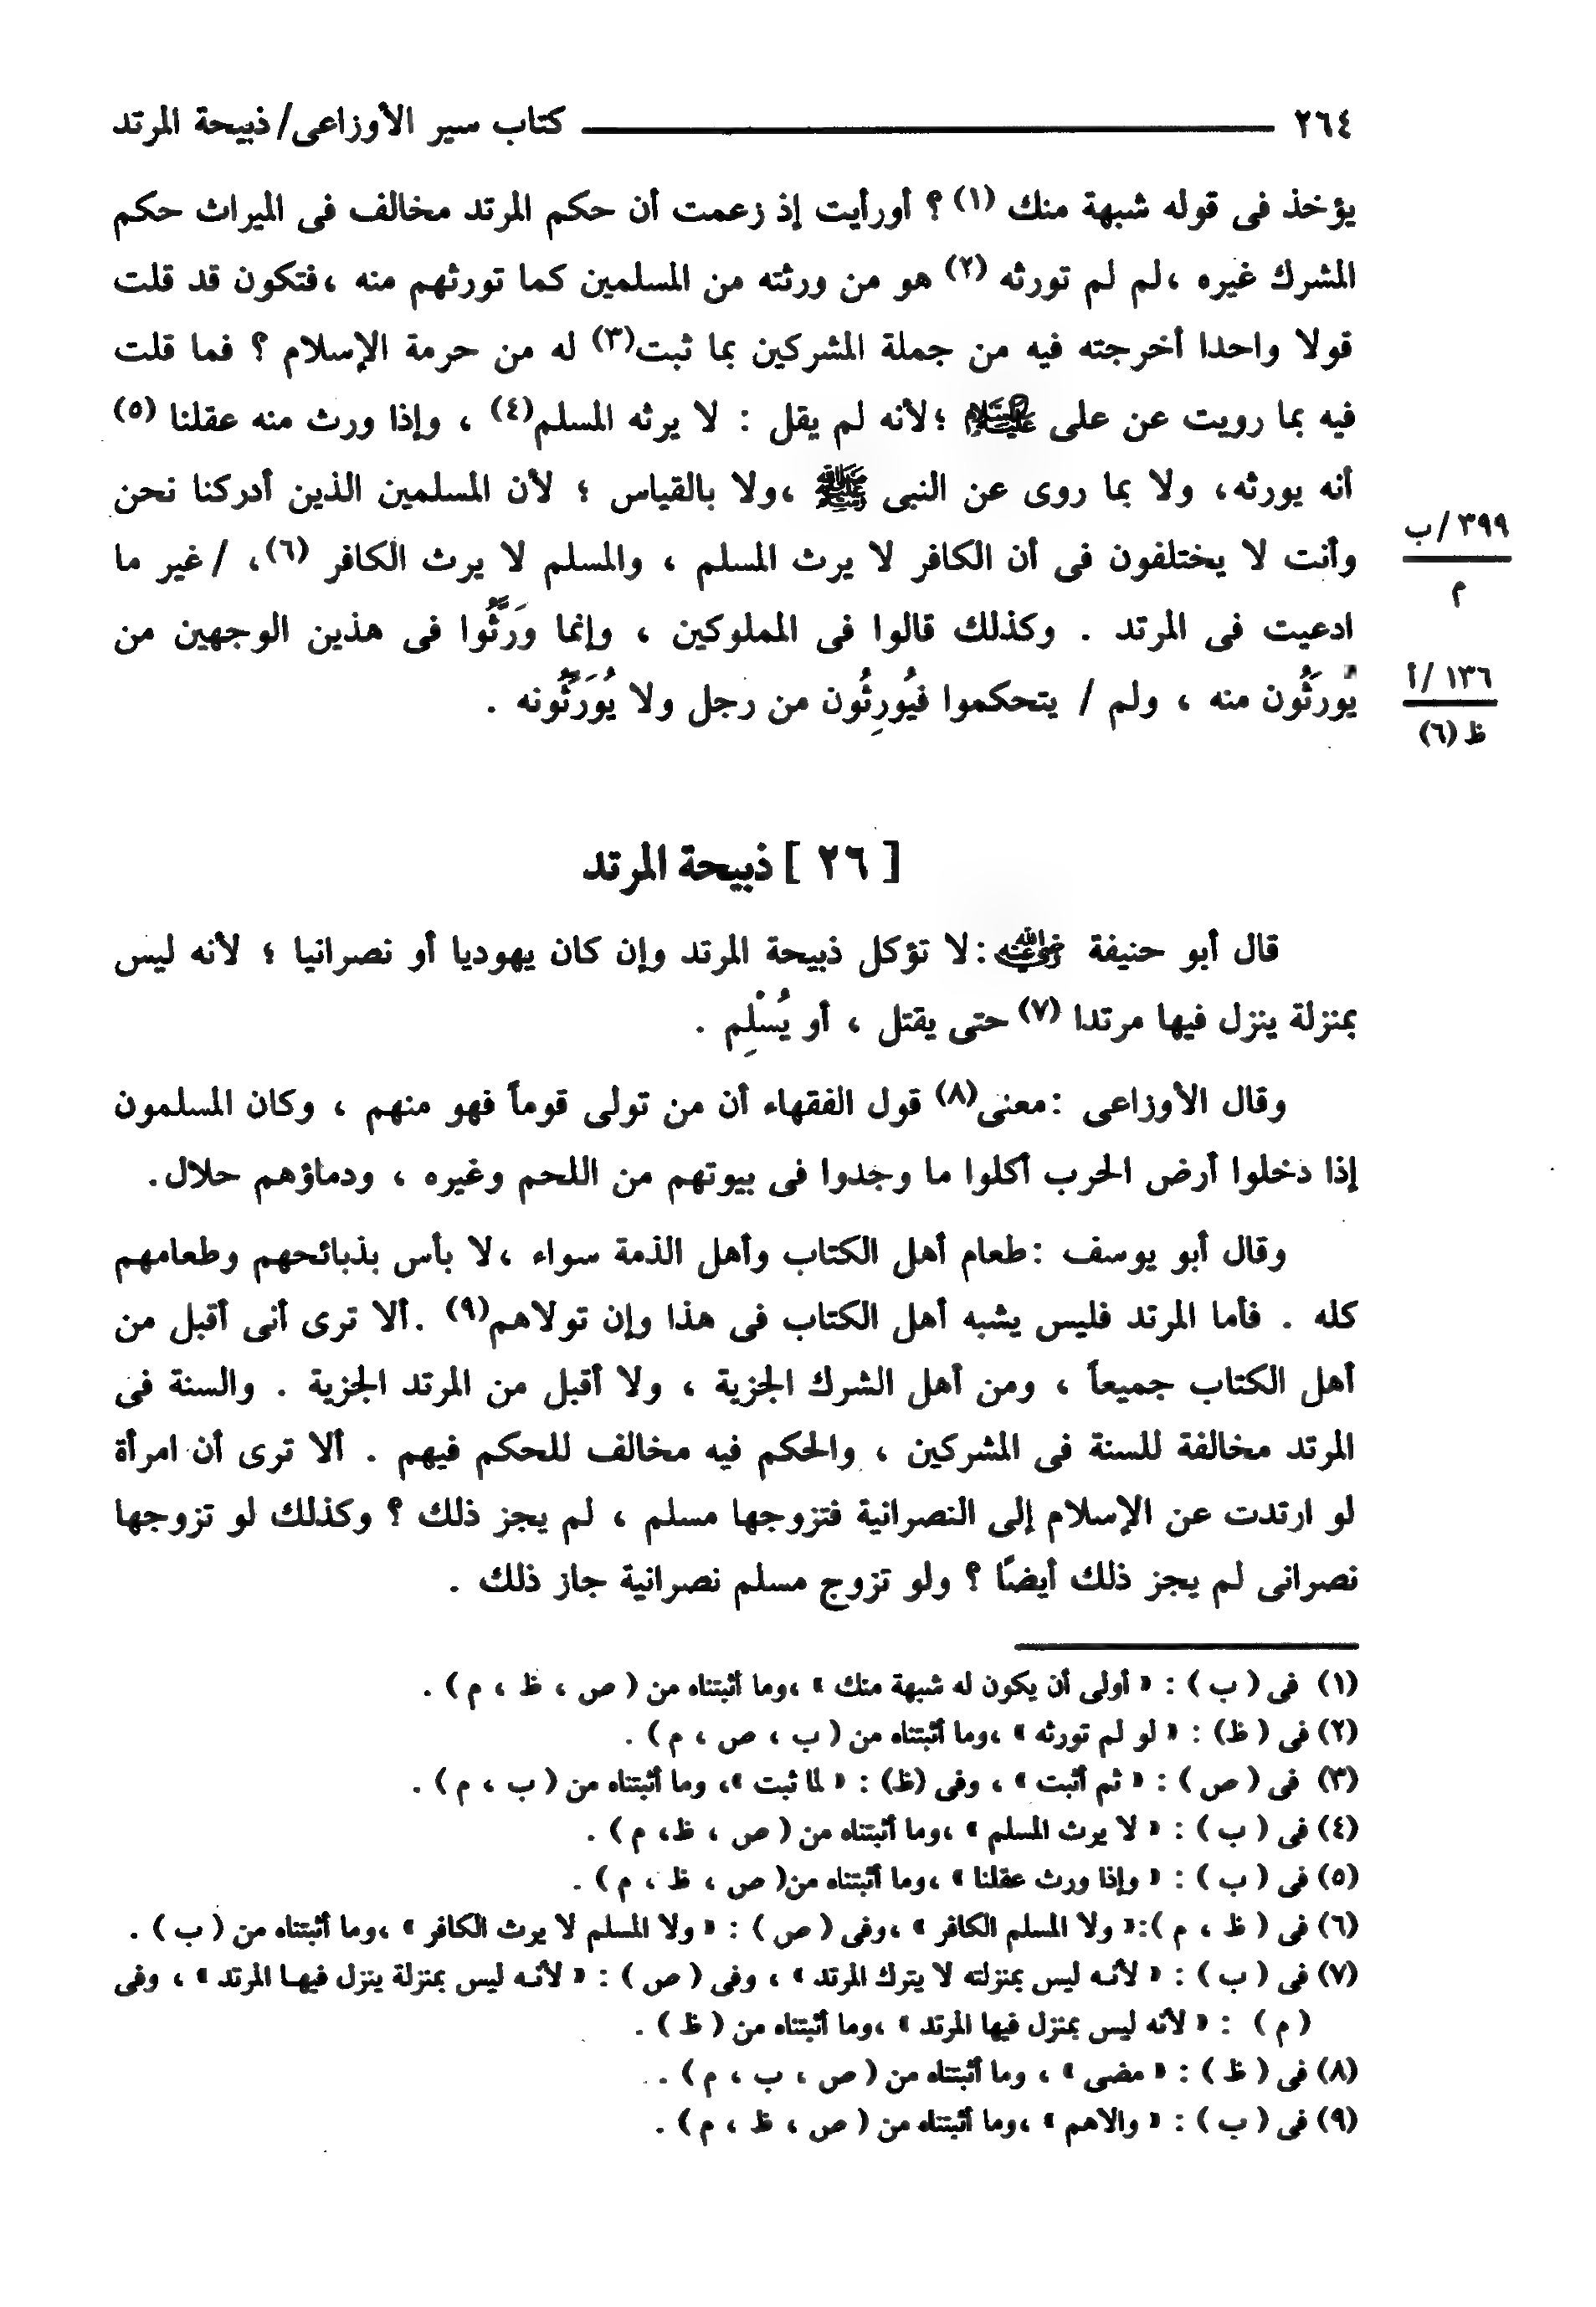 ٢٦٤ كتاب سير الأوزاعى/ ذبيحة المرتد
يؤخذ فى قوله شبهة منك (١) ؟ أورأيت إذ زعمت أن حكم المرتد مخالف فى الميراث حكم
المشرك غيره ،لم لم تورثه (٢) هو من ورثته من المسلمين كما تورثهم منه ،فتكون قد قلت
قولا واحدا أخرجته فيه من جملة المشركين بما ثبت(٣) له من حرمة الإسلام ؟ فما قلت
فيه بما رويت عن على عليه السلام ؛لأنه لم يقل : لا يرثه المسلم(٤) ، وإذا ورث منه عقلنا (٥)
أنه يورثه، ولا بما روى عن النبى ﷺ ،ولا بالقياس ؛ لأن المسلمين الذين أدركنا نحن
٣٩٩/ب
وأنت لا يختلفون فى أن الكافر لا يرث المسلم ، والمسلم لا يرث الكافر (٦)، / غير ما
م
ادعيت فى المرتد . وكذلك قالوا فى المملوكين ، وإنما وَرَّثُوا فى هذين الوجهين من
١٣٦/أ
يُورَثُون منه ، ولم / يتحكموا فيُورِثُون من رجل ولا يُوَرِّثُونه .
ظ (٦)
[ ٢٦ ] ذبيحة المرتد
قال أبو حنيفة رضي الله عنه :لا تؤكل ذبيحة المرتد وإن كان يهوديا أو نصرانيا ؛ لأنه ليس
بمنزلة ينزل فيها مرتدا (٧) حتى يقتل ، أو يُسْلِم .
وقال الأوزاعى :معنى(٨) قول الفقهاء أن من تولى قوماً فهو منهم ، وكان المسلمون
إذا دخلوا أرض الحرب أكلوا ما وجدوا فى بيوتهم من اللحم وغيره ، ودماؤهم حلال.
وقال أبو يوسف :طعام أهل الكتاب وأهل الذمة سواء ،لا بأس بذبائحهم وطعامهم
كله . فأما المرتد فليس يشبه أهل الكتاب فى هذا وإن تولاهم(٩) .ألا ترى أنى أقبل من
أهل الكتاب جميعاً ، ومن أهل الشرك الجزية ، ولا أقبل من المرتد الجزية . والسنة فى
المرتد مخالفة للسنة فى المشركين ، والحكم فيه مخالف للحكم فيهم . ألا ترى أن امرأة
لو ارتدت عن الإسلام إلى النصرانية فتزوجها مسلم ، لم يجز ذلك ؟ وكذلك لو تزوجها
نصرانى لم يجز ذلك أيضًا ؟ ولو تزوج مسلم نصرانية جاز ذلك .
(١) فى ( ب ) : « أولى أن يكون له شبهة منك » ،وما أثبتناه من ( ص ، ظ ، م ) .
(٢) فى ( ظ) : « لو لم تورثه » ،وما أثبتناه من ( ب ، ص ، م ) .
(٣) فى ( ص ) : « ثم أثبت » ، وفى (ظ) : « لما ثبت »، وما أثبتناه من ( ب ، م ) .
(٤) فى ( ب ) : « لا يرث المسلم » ،وما أثبتناه من ( ص ، ظ، م ) .
(٥) فى ( ب ) : « وإذا ورث عقلنا » ،وما أثبتناه من( ص ، ظ ، م ) .
(٦) فى ( ظ ، م ):« ولا المسلم الكافر » ،وفى ( ص ) : « ولا المسلم لا يرث الكافر » ،وما أثبتناه من ( ب ) .
(٧) فى ( ب ) : « لأنـه ليس بمنزلته لا يترك المرتد » ، وفى ( ص ) : « لأنـه ليس بمنزلة ينزل فيهـا المرتد » ، وفى
( م ) : « لأنه ليس بمنزل فيها المرتد » ،وما أثبتناه من ( ظ ) .
(٨) فى ( ظ ) : « مضى » ، وما أثبتناه من ( ص ، ب ، م ) .
(٩) فى ( ب ) : « والاهم » ،وما أثبتناه من ( ص ، ظ ، م ) .